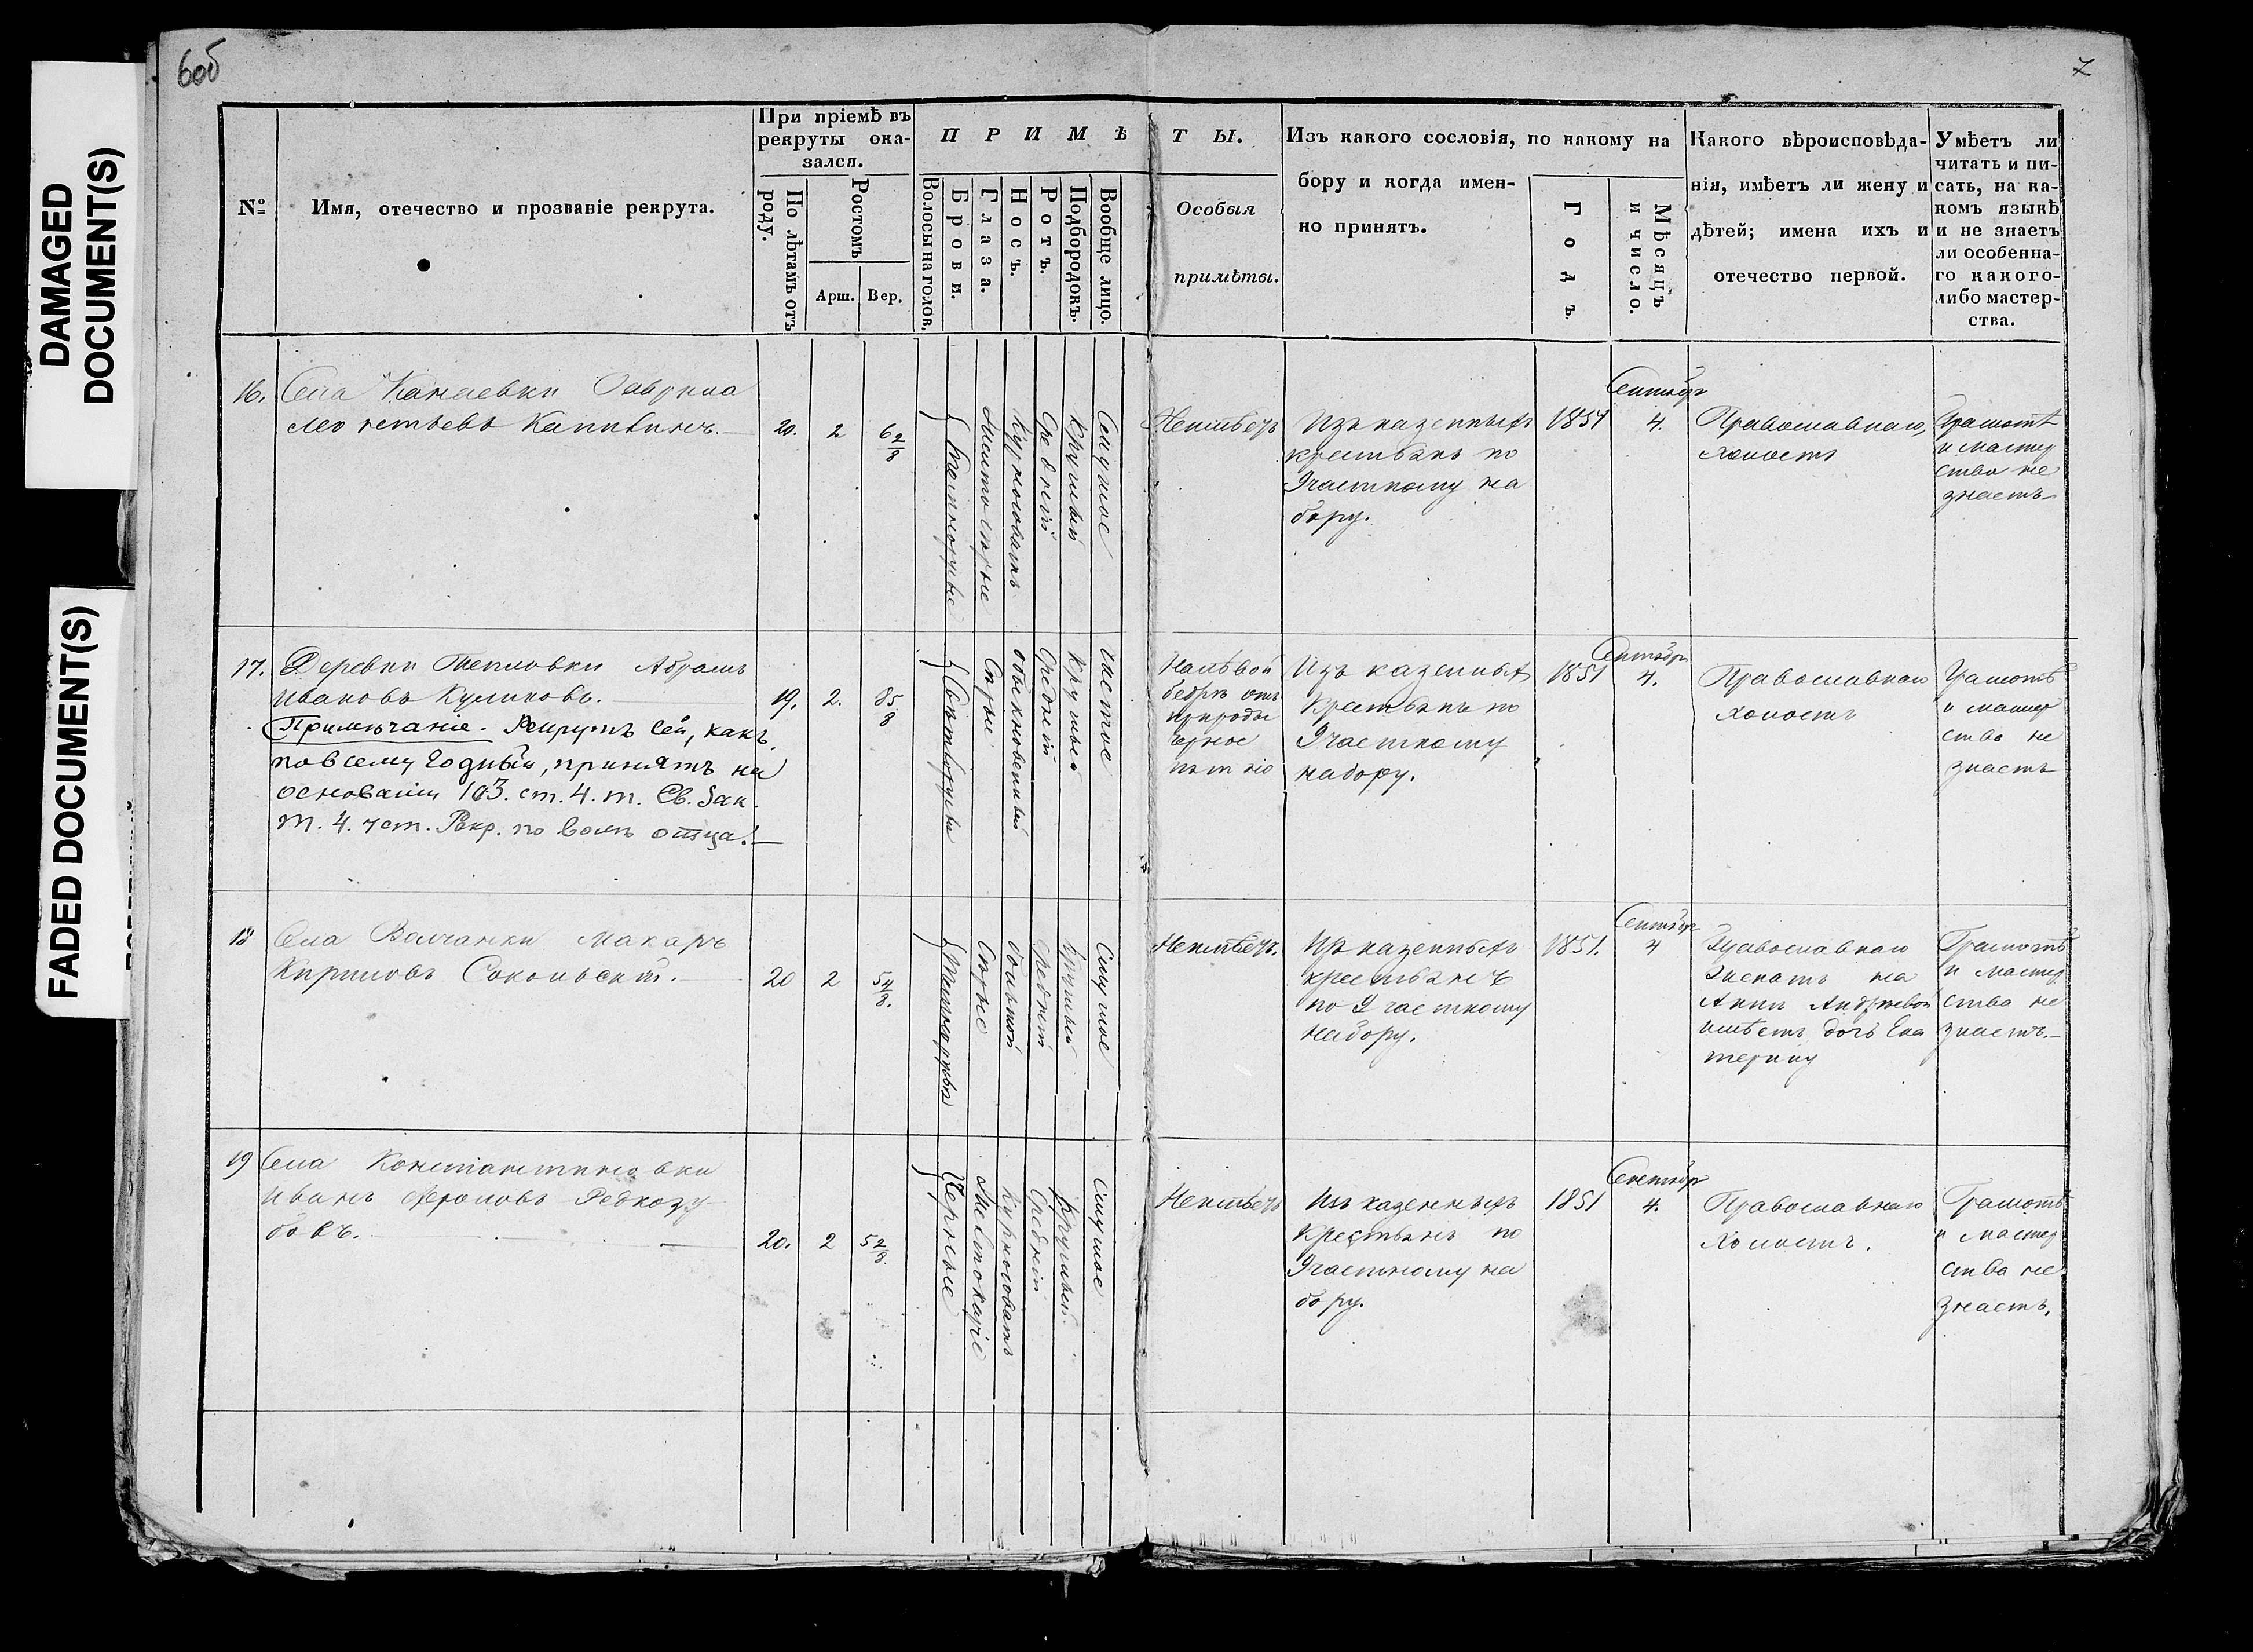 6об
7
DAMAGED
DOCUMENT(S)
FADED DOCUMENT(S)
№
Имя, отечество и прозваніе рекрута.
При пріемѣ въ
рекруты ока-
зался.
По лѣтамъ отъ
роду.
Ростомъ
Арш.
Вер.
ПРИМѢТЫ.
Волосы на голов.
Брови.
Глаза.
Носъ.
Ротъ.
Подбородокъ.
Вообще лицо.
Особыя
примѣты.
Изъ какого сословія, по какому на
бору и когда имен-
но принятъ.
Годъ.
Мѣсяцъ
и число.
Какого вѣроисповѣда-
нія, имѣетъ ли жену и
дѣтей; имена ихъ и
отечество первой.
Умѣетъ ли
читать и пи-
сать, на ка-
комъ языкѣ
и не знаетъ
ли особенна-
го какого-
либо мастер-
ства.
16.
Села Канаевки Гаврила
20.
2
6 2/8
Темнорусые
Курносоватъ
Средній
Круглый
Смуглое
Неимѣетъ
Изъ казенныхъ
крестьянъ по
Участному на
бору.
1851
Сентябр
4.
Православнаго,
холостъ
Грамотѣ
и мастер
ства не
знаетъ
17.
Деревни Тепловки Абрамъ
Ивановъ Куликовъ.
Примѣчаніе. Рекрутъ сей, какъ
повсему годный, принятъ на
основаніи 103. ст. 4. т. Св. Зак.
Т. 4. уст. Рекр. по волѣ отца.
19.
2.
85/8
Свѣтлорусы
Сѣрые
обыкновенный
Средній
круглый
чистое
На лѣвой
бедрѣ отъ
природы
черное
пятно
Изъ казенных
Крестьянъ по
Участному
набору.
1851
Сентябр
4.
Православнаго
холостъ
Грамотѣ
и мастер
ства не
знаетъ
18
Села Волчанки Макаръ
Кириловъ Сокольскій.
20
2
5 4/8.
Сѣрые
большой
Средній
Круглый
Смуглое
Неимѣетъ.
Изъ казенныхъ
крестьянъ
по Участному
набору.
1851.
Сентябр
4
Православнаго
Женатъ на
Аннѣ Андреевой
имѣетъ дочь Ека
терину
Грамотѣ
и мастер
ства не
знаетъ.
19
Села Константиновки
Иванъ Редкозу-
бовъ.
20.
2
5 2/8
Черные
Курносоватъ
Средній
Круглый
Смуглое
Неимѣетъ
Изъ казенныхъ
Крестьянъ по
Участному на
бору.
1851
Сентябр
4.
Православнаго
Холостъ.
Грамотѣ
и мастер
ства не
знаетъ.